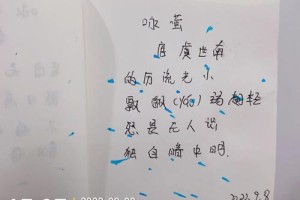 咏萤
唐 虞世南
的历流光小
飘飖(yáo)弱翅轻
恐是无人识
独自暗中明.
2022.9.8